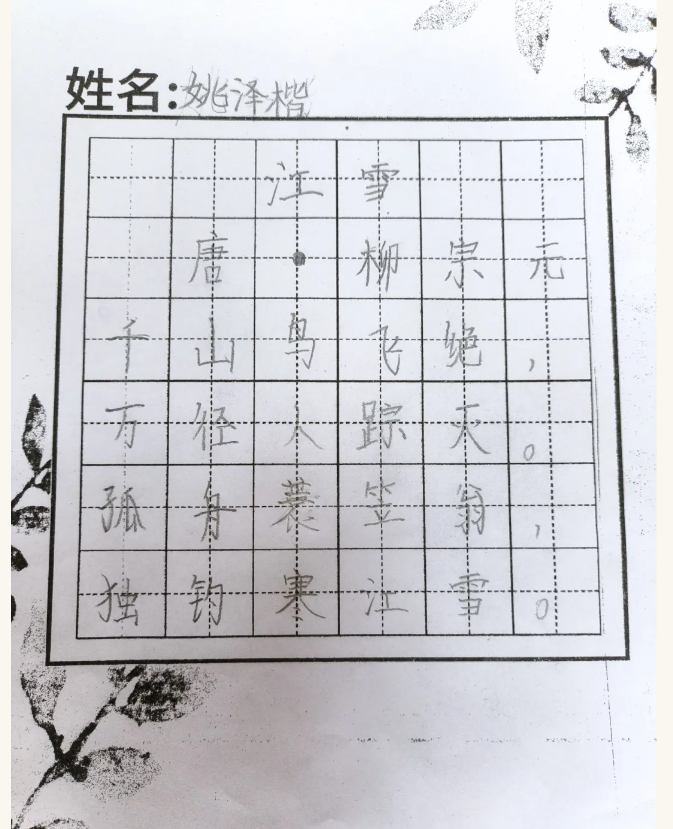 姓名:姚泽楷
江雪
唐·柳宗元
千山鸟飞绝，
万径人踪灭。
孤舟蓑笠翁，
独钓寒江雪。